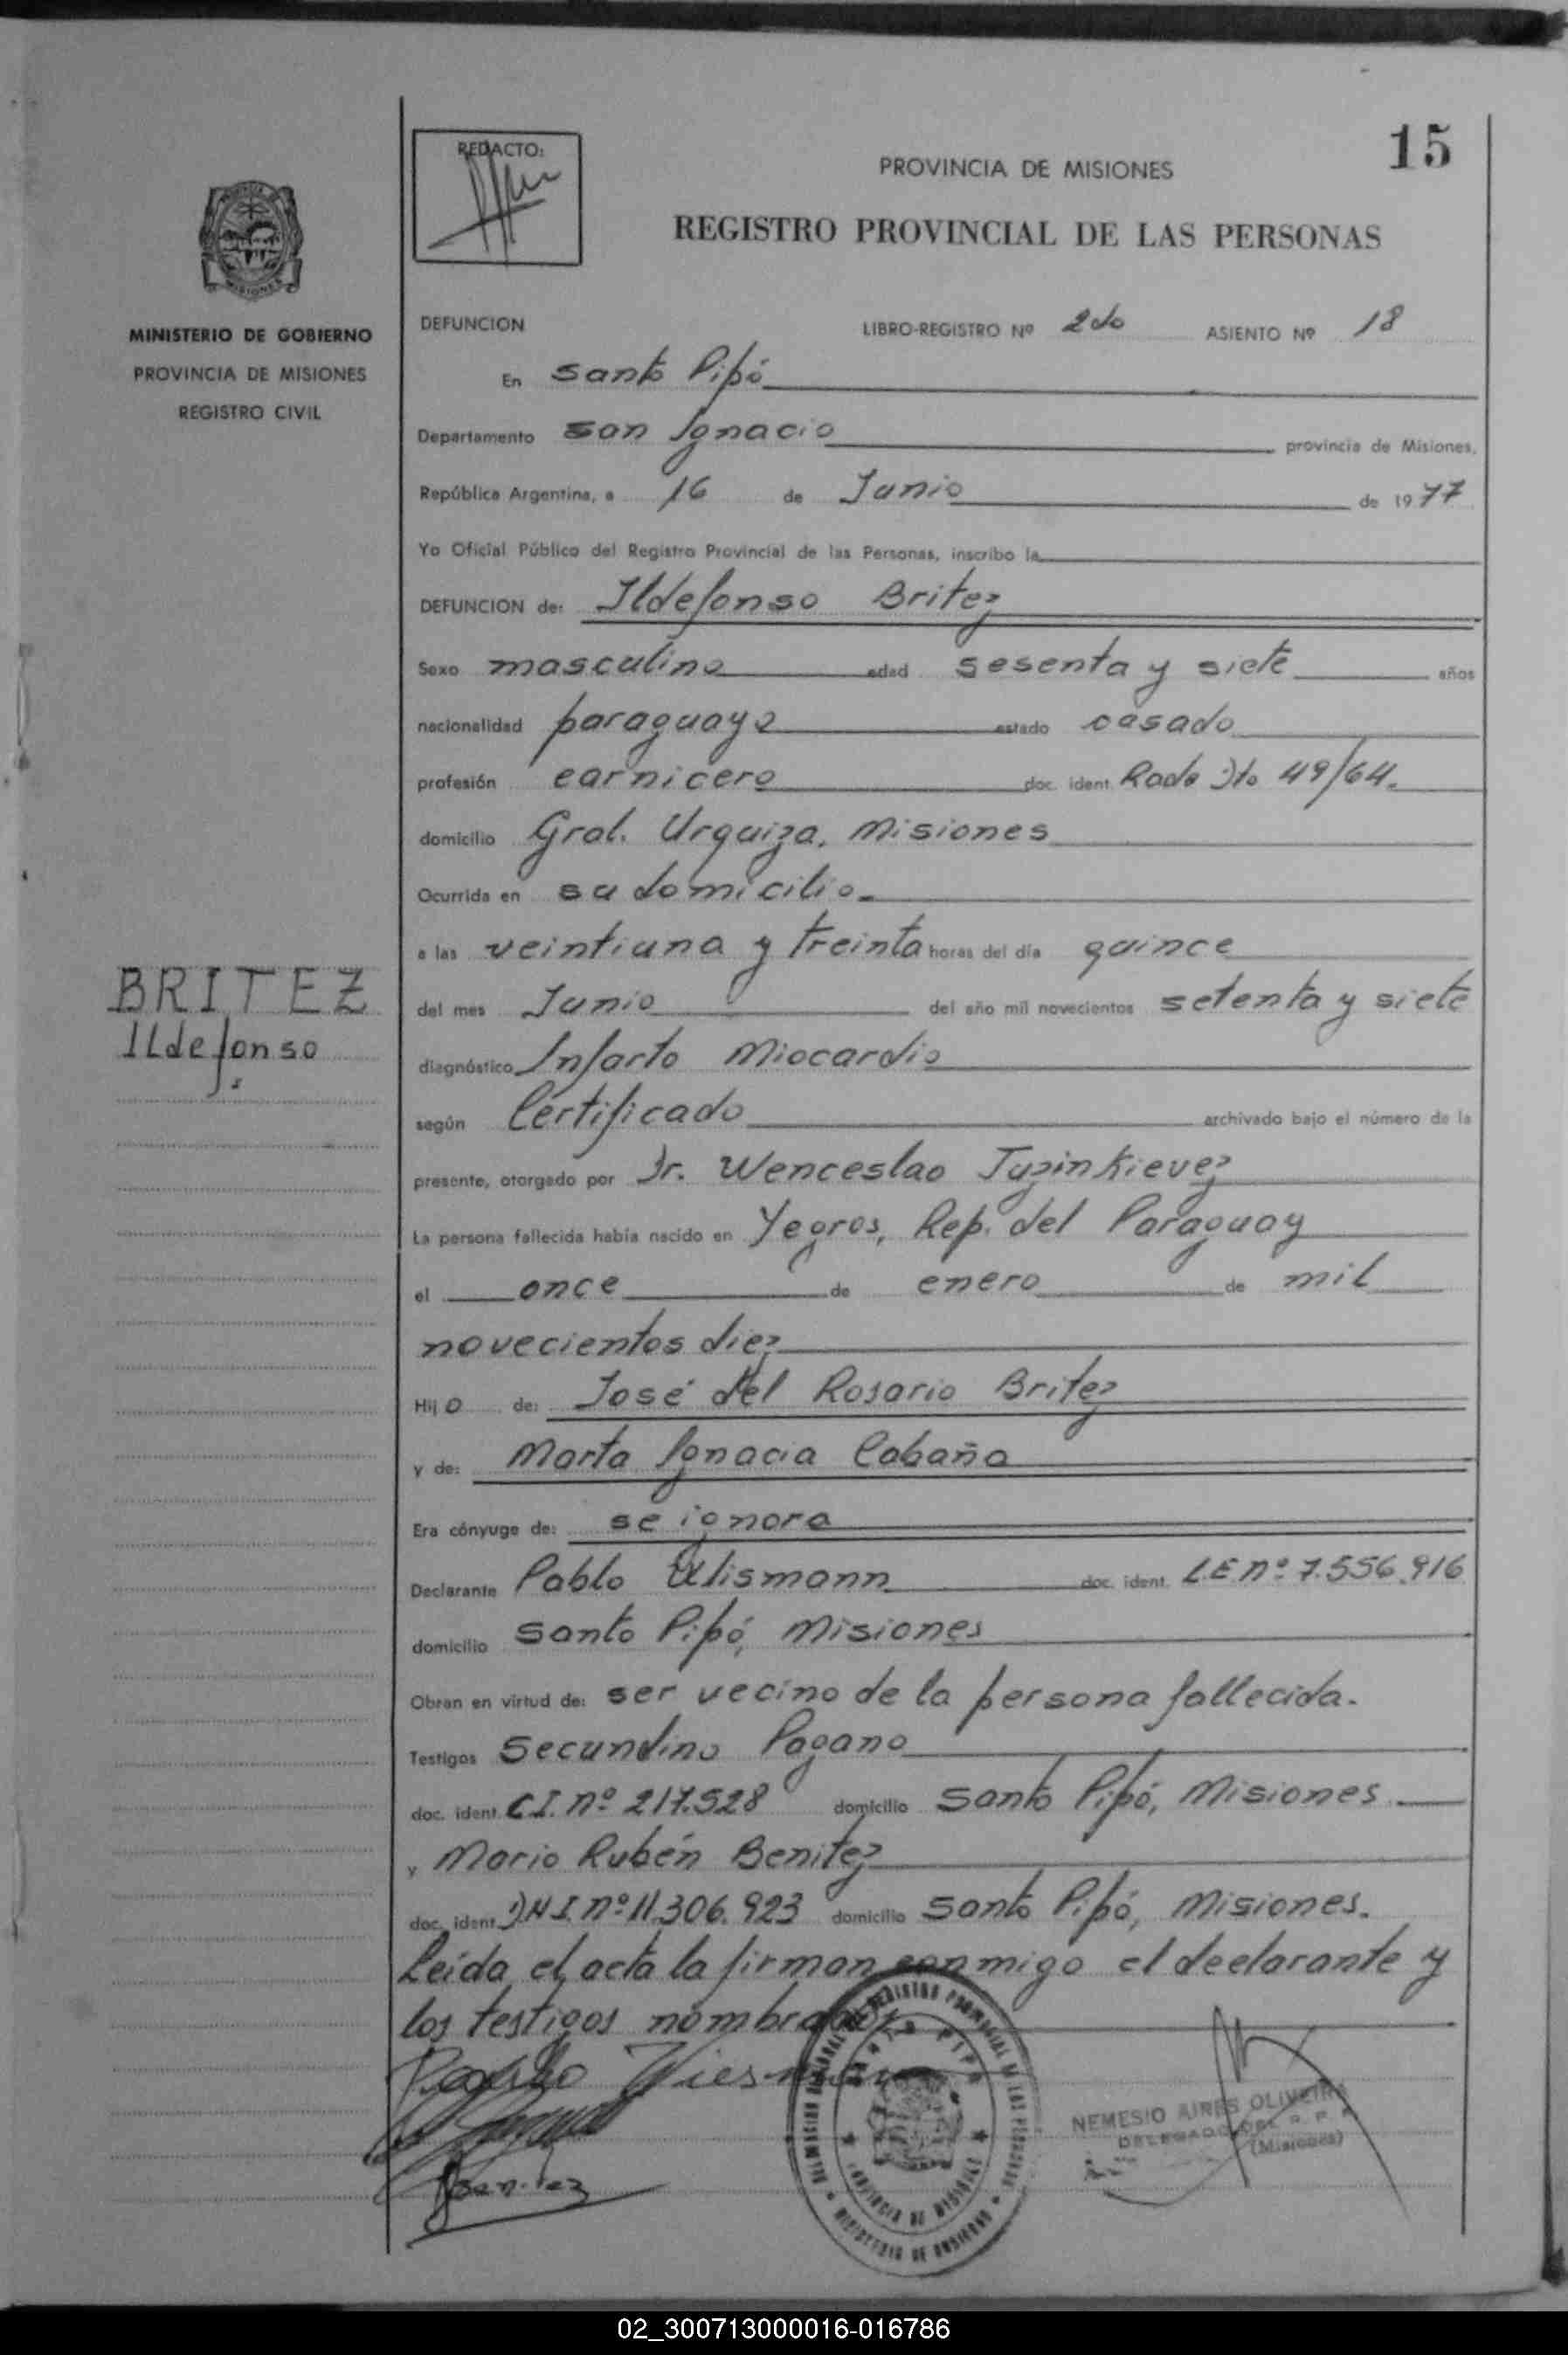 15
REDACTO:
PROVINCIA DE MISIONES
REGISTRO PROVINCIAL DE LAS PERSONAS
MINISTERIO DE GOBIERNO
PROVINCIA DE MISIONES
REGISTRO CIVIL
DEFUNCION LIBRO-REGISTRO Nº 2do ASIENTO Nº 18
En Santo Pipó
Departamento San Ignacio provincia de Misiones,
República Argentina, a 16 de Junio de 1977
Yo Oficial Público del Registro Provincial de las Personas, inscribo la
DEFUNCION de: Ildefonso Britez
Sexo masculino edad sesenta y siete años
nacionalidad paraguaya estado casado
profesión carnicero doc. ident. Rado Dto 49/64.
domicilio Gral. Urquiza, Misiones
Ocurrida en su domicilio
a las veintiuna y treinta horas del día quince
BRITEZ
Ildefonso
del mes Junio del año mil novecientos setenta y siete
diagnóstico Infarto Miocardio
según Certificado archivado bajo el número de la
presente, otorgado por Dr. Wenceslao
La persona fallecida había nacido en Yegros, Rep. del Paraguay
el once de enero de mil
novecientos diez
Hijo de: José del Rosario Britez
y de: Marta Ignacia Cabaña
Era cónyuge de: se ignora
Declarante Pablo doc. ident. L.E nº 7.556.916
domicilio Santo Pipó, Misiones
Obran en virtud de: ser vecino de la persona fallecida.
Testigos Secundino Pagano
doc. ident. C.I. nº 217.528 domicilio Santo Pipó, Misiones
y Mario Rubén Benitez
doc. ident. DNI nº 11.306.923 domicilio Santo Pipó, Misiones.
Leída el acta la firman conmigo el declarante y
los testigos nombrados
Benitez
NEMESIO AIRES OLIVEIRA
DELEGADO DEL R. P. P.
(Misiones)
SANTO PIPO
PROVINCIA DE MISIONES
MINISTERIO DE GOBIERNO
02_300713000016-016786